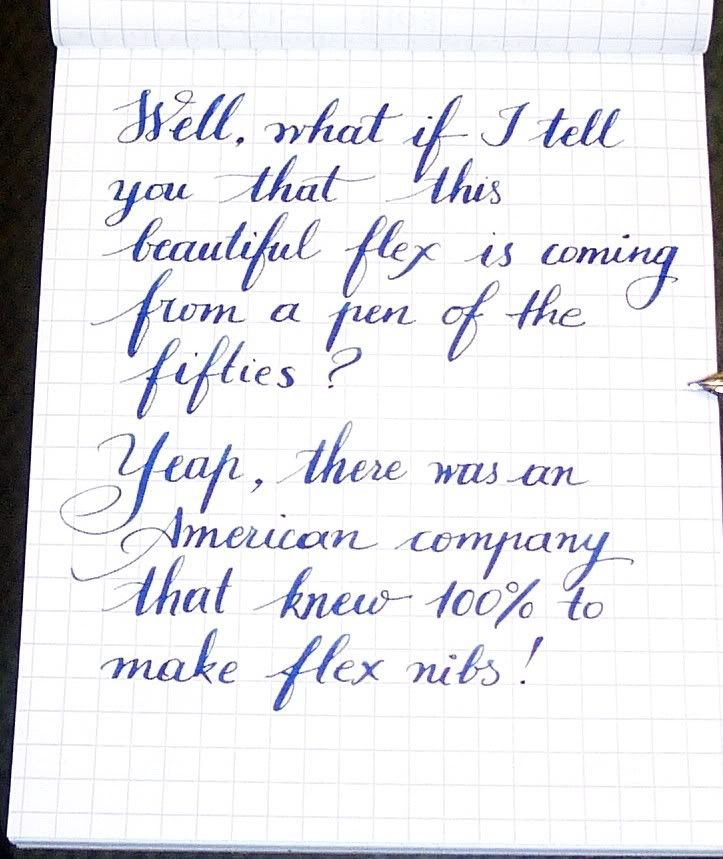 Well, what if I tell
you that this
beautiful flex is coming
from a pen of the
fifties?
Yeap, there was an
American company
that knew 100% to
make flex nibs!